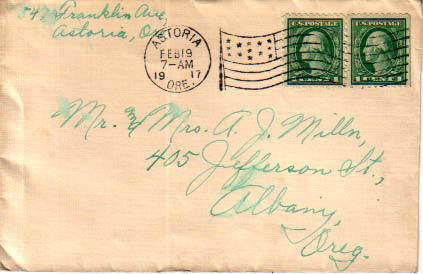 547 Franklin Ave,
Astoria, O
ASTORIA
FEB 19
7-AM
1917
ORE.
U.S. POSTAGE
U.S. POSTAGE
Mr. and Mrs. A. J. Milln,
405
Jefferson St.,
Albany,
Oreg.